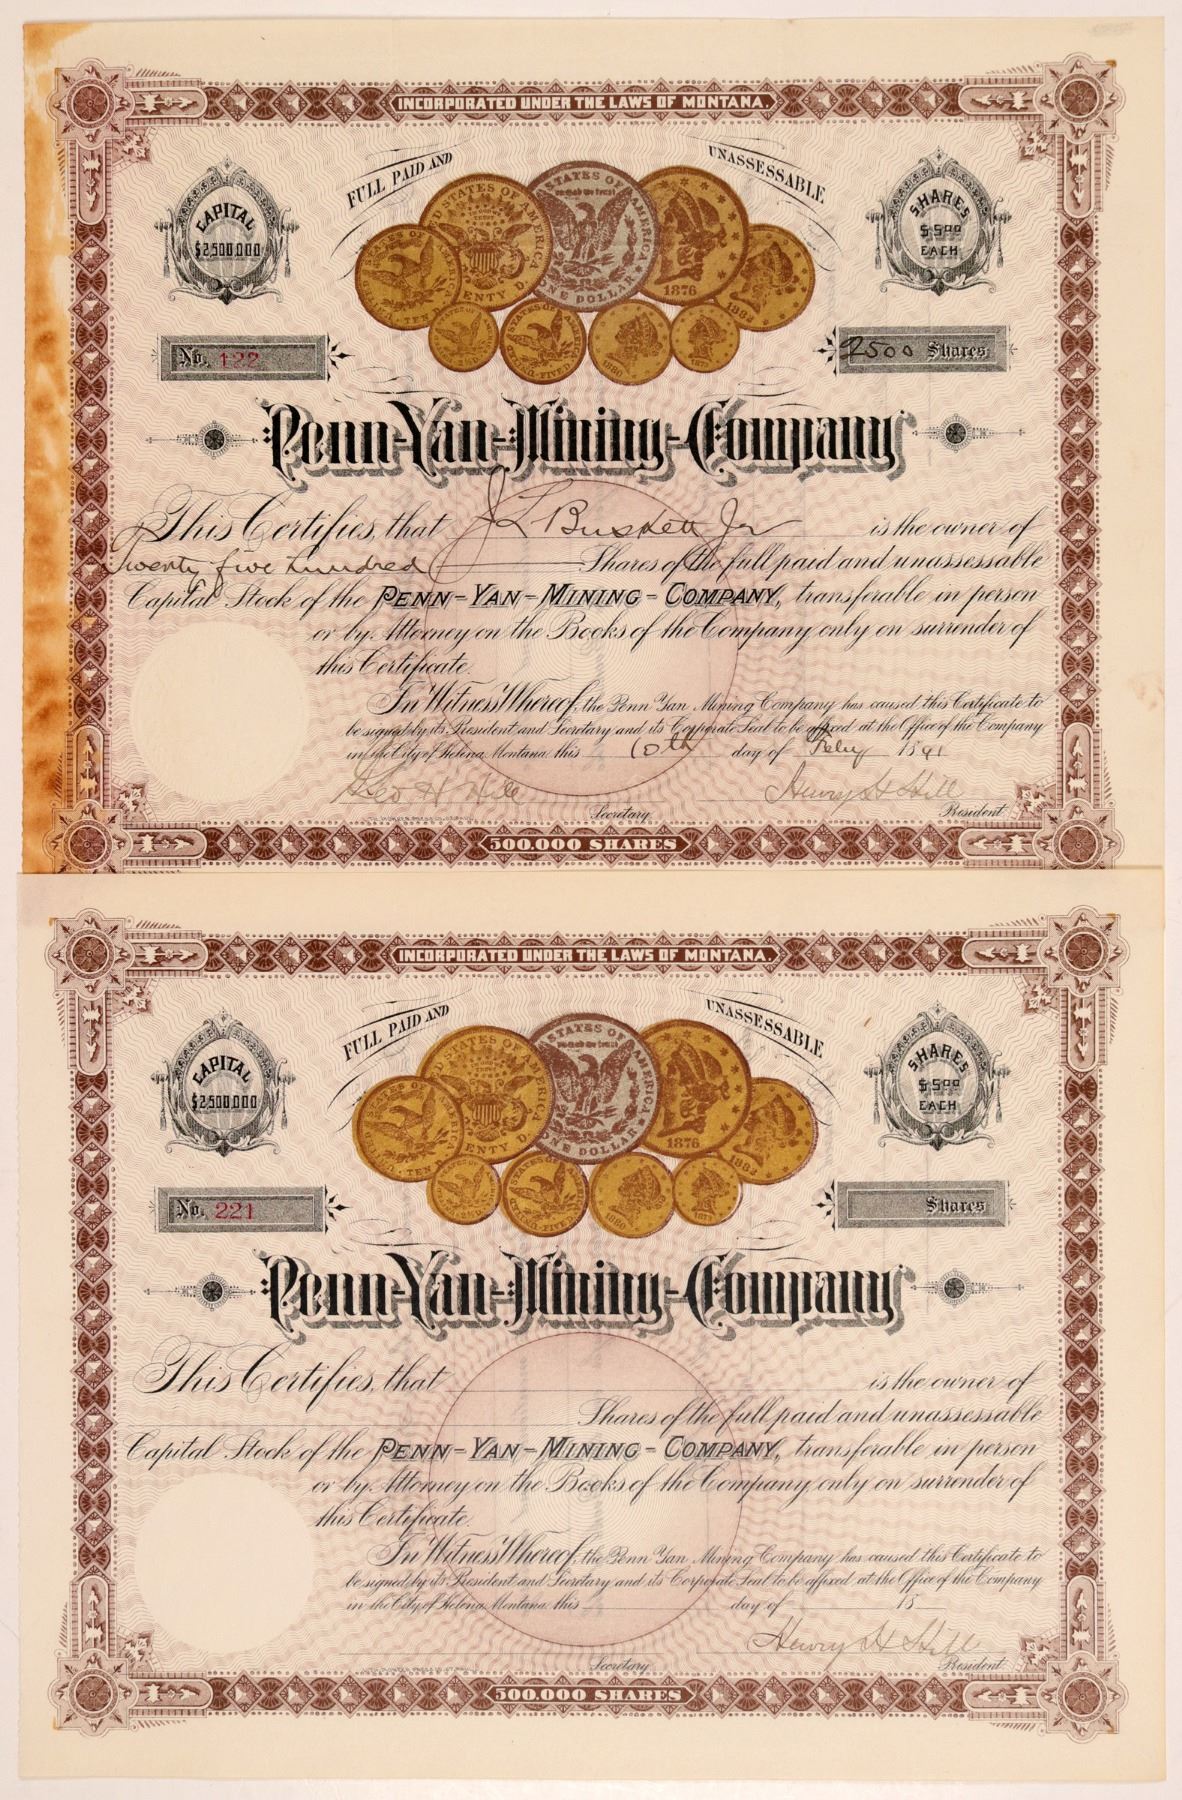 INCORPORATED UNDER THE LAWS OF MONTANA.
FULL PAID AND UNASSESSABLE
CAPITAL
$2,500,000
SHARES
$5.00
EACH
STATES OF AMERICA
ONE DOLLAR
1876
1880
No. 122
2500 Shares
Penn-Yan-Mining-Company
This Certifies, that J L Buskett Jr is the owner of
Twenty five hundred Shares of the full paid and unassessable
Capital Stock of the PENN-YAN-MINING-COMPANY, transferable in person
or by Attorney on the Books of the Company only on surrender of
this Certificate.
In Witness Whereof, the Penn Yan Mining Company has caused this Certificate to
be signed by its President and Secretary and its Corporate Seal to be affixed at the Office of the Company
in the City of Helena, Montana this 10th day of Feby 1891
Geo H Hill Secretary. Henry H Hill President
500.000 SHARES
INCORPORATED UNDER THE LAWS OF MONTANA.
FULL PAID AND UNASSESSABLE
CAPITAL
$2,500,000
SHARES
$5.00
EACH
STATES OF AMERICA
ONE DOLLAR
1876
1880
No. 221
Shares
Penn-Yan-Mining-Company
This Certifies, that is the owner of
Shares of the full paid and unassessable
Capital Stock of the PENN-YAN-MINING-COMPANY, transferable in person
or by Attorney on the Books of the Company only on surrender of
this Certificate.
In Witness Whereof, the Penn Yan Mining Company has caused this Certificate to
be signed by its President and Secretary and its Corporate Seal to be affixed at the Office of the Company
in the City of Helena, Montana this day of 18
Henry H Hill
Secretary President
500.000 SHARES